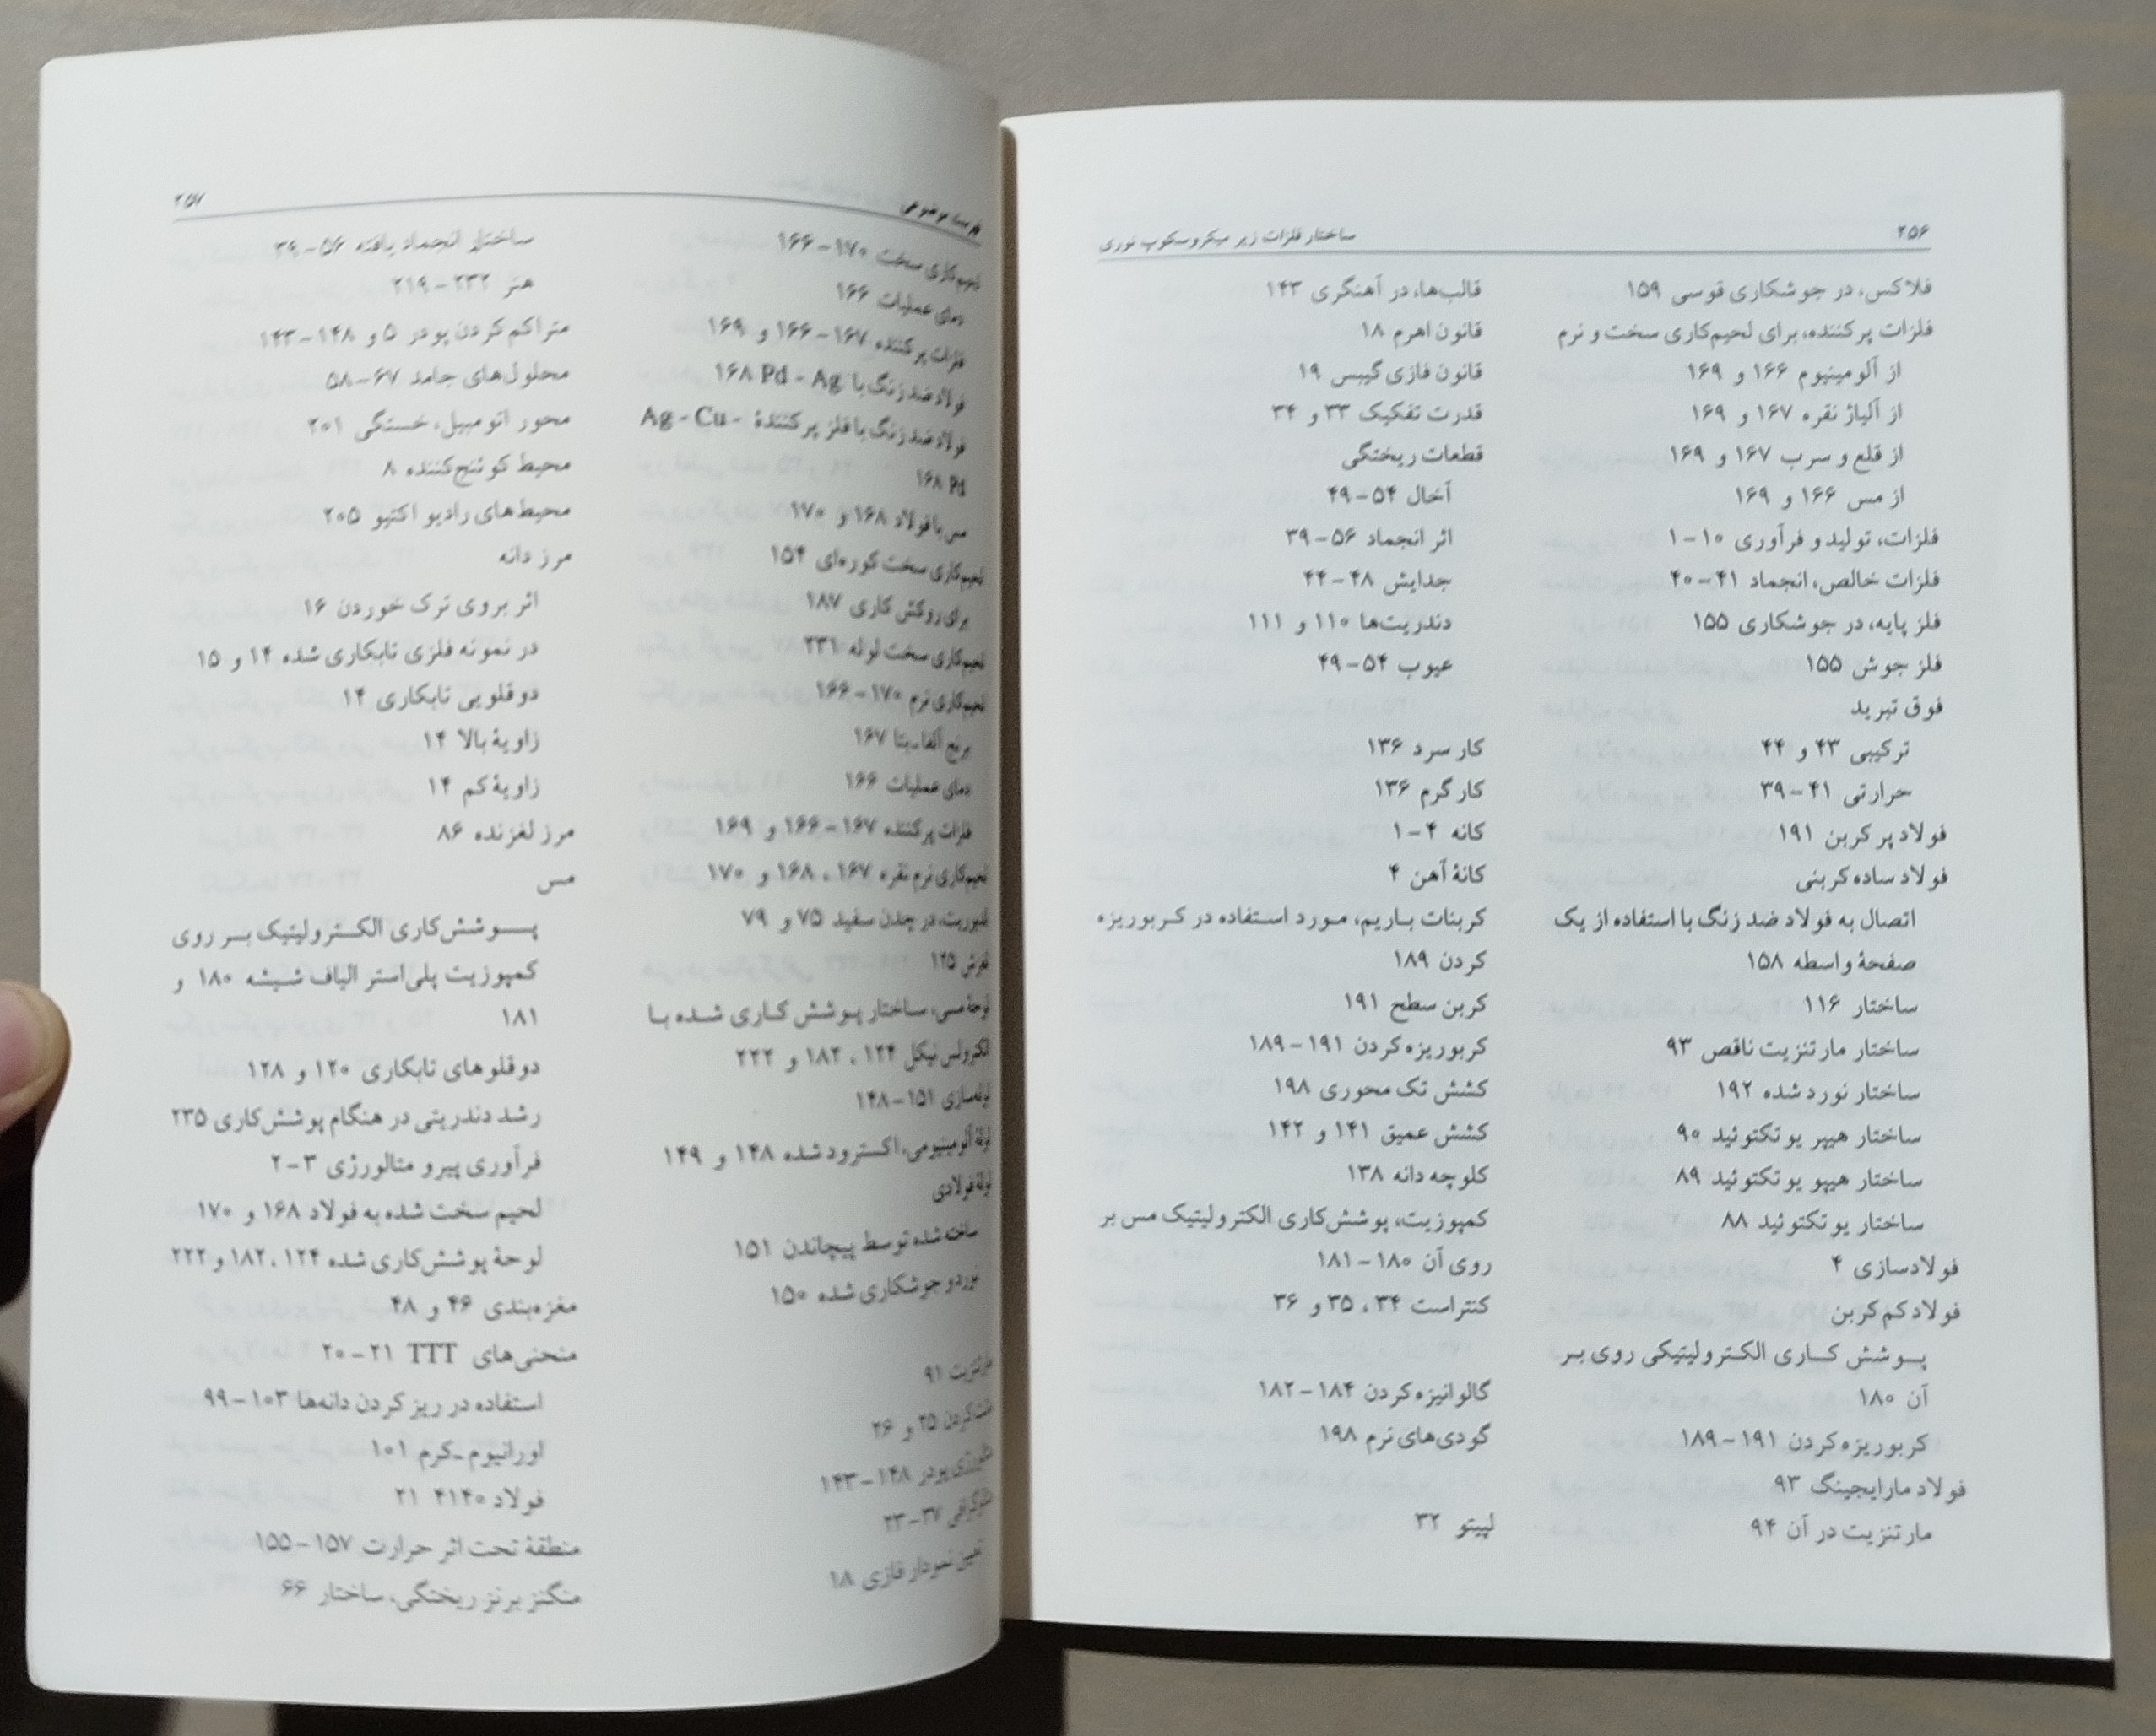 ۲۵۶
ساختار فلزات زیر میکروسکوپ نوری
فلاکس، در جوشکاری قوسی ۱۵۹
فلزات پرکننده، برای لحیم‌کاری سخت و نرم
از آلومینیوم ۱۶۶ و ۱۶۹
از آلیاژ نقره ۱۶۷ و ۱۶۹
از قلع و سرب ۱۶۷ و ۱۶۹
از مس ۱۶۶ و ۱۶۹
فلزات، تولید و فرآوری ۱۰-۱
فلزات خالص، انجماد ۴۱-۴۰
فلز پایه، در جوشکاری ۱۵۵
فلز جوش ۱۵۵
فوق تبرید
ترکیبی ۴۳ و ۴۴
حرارتی ۴۱-۳۹
فولاد پر کربن ۱۹۱
فولاد ساده کربنی
اتصال به فولاد ضد زنگ با استفاده از یک
صفحهٔ واسطه ۱۵۸
ساختار ۱۱۶
ساختار مارتنزیت ناقص ۹۳
ساختار نورد شده ۱۹۲
ساختار هیپر یوتکتوئید ۹۰
ساختار هیپو یوتکتوئید ۸۹
ساختار یوتکتوئید ۸۸
فولادسازی ۴
فولاد کم کربن
پوشش کاری الکترولیتیکی روی بر
آن ۱۸۰
کربوریزه کردن ۱۹۱-۱۸۹
فولاد مارایجینگ ۹۳
مارتنزیت در آن ۹۴
قالب‌ها، در آهنگری ۱۴۳
قانون اهرم ۱۸
قانون فازی گیبس ۱۹
قدرت تفکیک ۳۳ و ۳۴
قطعات ریختگی
آخال ۵۴-۴۹
اثر انجماد ۵۶-۳۹
جدایش ۴۸-۴۴
دندریت‌ها ۱۱۰ و ۱۱۱
عیوب ۵۴-۴۹
کار سرد ۱۳۶
کار گرم ۱۳۶
کانه ۴-۱
کانهٔ آهن ۴
کربنات باریم، مورد استفاده در کربوریزه
کردن ۱۸۹
کربن سطح ۱۹۱
کربوریزه کردن ۱۹۱-۱۸۹
کشش تک محوری ۱۹۸
کشش عمیق ۱۴۱ و ۱۴۲
کلوچه دانه ۱۳۸
کمپوزیت، پوشش‌کاری الکترولیتیک مس بر
روی آن ۱۸۰-۱۸۱
کنتراست ۳۴، ۳۵ و ۳۶
گالوانیزه کردن ۱۸۴-۱۸۲
گودی‌های نرم ۱۹۸
لپیتو ۳۲
فهرست موضوعی
۲۵۷
لحیم‌کاری سخت ۱۷۰-۱۶۶
دمای عملیات ۱۶۶
فلزات پرکننده ۱۶۷-۱۶۶ و ۱۶۹
فولاد ضد زنگ با Pd - Ag ۱۶۸
فولاد ضد زنگ با فلز پرکنندهٔ Ag - Cu -
Pd ۱۶۸
مس با فولاد ۱۶۸ و ۱۷۰
لحیم‌کاری سخت کوره‌ای ۱۵۴
برای روکش کاری ۱۸۷
لحیم‌کاری سخت لوله ۲۳۱
لحیم‌کاری نرم ۱۷۰-۱۶۶
برنج آلفا-بتا ۱۶۷
دمای عملیات ۱۶۶
فلزات پرکننده ۱۶۷-۱۶۶ و ۱۶۹
لحیم‌کاری نرم نقره ۱۶۷، ۱۶۸ و ۱۷۰
لدبوریت، در چدن سفید ۷۵ و ۷۹
لغزش ۱۲۵
لوحهٔ مسی، ساختار پوشش کاری شده با
الکترولیس نیکل ۱۲۴، ۱۸۲ و ۲۲۲
لوله‌سازی ۱۵۱-۱۴۸
لولهٔ آلومینیومی، اکسترود شده ۱۴۸ و ۱۴۹
لولهٔ فولادی
ساخته شده توسط پیچاندن ۱۵۱
نورد و جوشکاری شده ۱۵۰
مارتنزیت ۹۱
مانت کردن ۲۵ و ۲۶
متالورژی پودر ۱۴۸-۱۴۳
متالوگرافی ۳۷-۲۳
تعیین نمودار فازی ۱۸
ساختار انجماد یافته ۵۶-۳۹
هنر ۲۳۲-۲۱۹
متراکم کردن پودر ۵ و ۱۴۸-۱۴۳
محلول‌های جامد ۶۷-۵۸
محور اتومبیل، خستگی ۲۰۱
محیط کوئنچ‌کننده ۸
محیط‌های رادیو اکتیو ۲۰۵
مرز دانه
اثر بروی ترک خوردن ۱۶
در نمونه فلزی تابکاری شده ۱۴ و ۱۵
دوقلویی تابکاری ۱۴
زاویهٔ بالا ۱۴
زاویهٔ کم ۱۴
مرز لغزنده ۸۶
مس
پوشش‌کاری الکترولیتیک بر روی
کمپوزیت پلی‌استر الیاف شیشه ۱۸۰ و
۱۸۱
دوقلوهای تابکاری ۱۲۰ و ۱۲۸
رشد دندریتی در هنگام پوشش‌کاری ۲۳۵
فرآوری پیرو متالورژی ۳-۲
لحیم سخت شده به فولاد ۱۶۸ و ۱۷۰
لوحهٔ پوشش‌کاری شده ۱۲۴، ۱۸۲ و ۲۲۲
مغزه‌بندی ۴۶ و ۴۸
منحنی‌های TTT ۲۱-۲۰
استفاده در ریز کردن دانه‌ها ۱۰۳-۹۹
اورانیوم-کرم ۱۰۱
فولاد ۴۱۴۰ ۲۱
منطقهٔ تحت اثر حرارت ۱۵۷-۱۵۵
منگنز برنز ریختگی، ساختار ۶۶